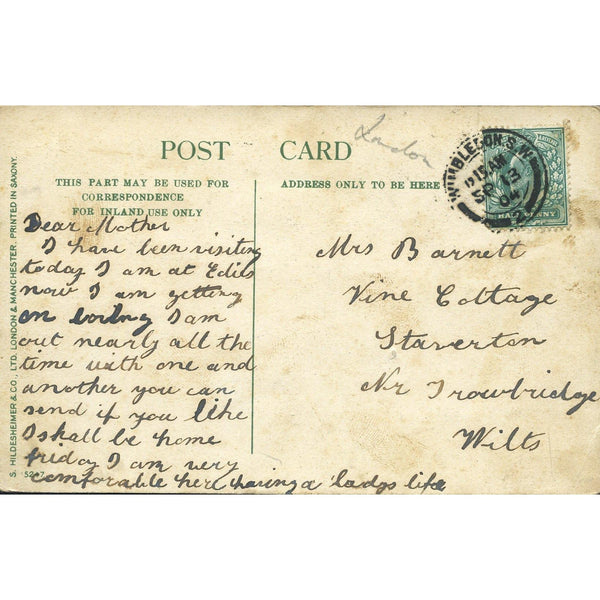 POST CARD
London
THIS PART MAY BE USED FOR
CORRESPONDENCE
FOR INLAND USE ONLY
ADDRESS ONLY TO BE HERE
WIMBLEDON. S.W.
SP 13
04
HALFPENNY
Dear Mother
I have been visiting
today I am at Edies
now I am getting
on I am
out nearly all the
time with one and
another you can
send if you like
I shall be home
friday I am very
comforable here having a ladys life
Mrs Barnett
Vine Cottage
Staverton
Nr Trowbridge
Wilts
S. HILDESHEIMER & CO., LTD. LONDON & MANCHESTER. PRINTED IN SAXONY.